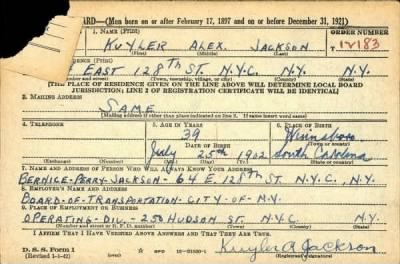 CARD—(Men born on or after February 17, 1897 and on or before December 31, 1921)
1. NAME (Print)
ORDER NUMBER
KUYLER ALEX. JACKSON
12183
(First) (Middle) (Last)
RESIDENCE (Print)
EAST 128TH ST. N.Y.C. N.Y.
(Town, township, village, or city) (County) (State)
[THE PLACE OF RESIDENCE GIVEN ON THE LINE ABOVE WILL DETERMINE LOCAL BOARD
JURISDICTION; LINE 2 OF REGISTRATION CERTIFICATE WILL BE IDENTICAL]
3. MAILING ADDRESS
SAME
[Mailing address if other than place indicated on line 2. If same insert word same]
4. TELEPHONE
5. AGE IN YEARS
6. PLACE OF BIRTH
39
Winnsboro
DATE OF BIRTH
(Town or county)
July 25th 1902
South Carolina
(Exchange) (Number) (Mo.) (Day) (Yr.) (State or country)
7. NAME AND ADDRESS OF PERSON WHO WILL ALWAYS KNOW YOUR ADDRESS
BERNICE-JACKSON-64 E. 128TH ST. N.Y.C., N.Y.
8. EMPLOYER'S NAME AND ADDRESS
BOARD-OF-TRANSPORTATION-CITY-OF-N.Y.
9. PLACE OF EMPLOYMENT OR BUSINESS
OPERATING-DIV.-250 HUDSON ST. N.Y.C. N.Y.
(Number and street or R. F. D. number) (Town) (County) (State)
I AFFIRM THAT I HAVE VERIFIED ABOVE ANSWERS AND THAT THEY ARE TRUE.
D. S. S. Form 1
(Revised 1-1-42) (over)
Kuyler A Jackson
(Registrant's signature)